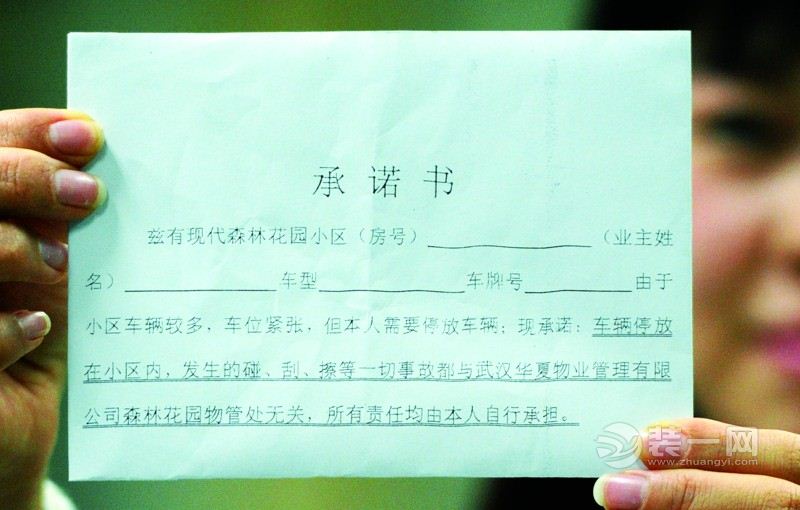 承诺书
兹有现代森林花园小区（房号）____________（业主姓
名）____________车型____________车牌号________由于
小区车辆较多，车位紧张，但本人需要停放车辆；现承诺：车辆停放
在小区内，发生的碰、刮、擦等一切事故都与武汉华夏物业管理有限
公司森林花园物管处无关，所有责任均由本人自行承担。
装一网
www.zhuangyi.com